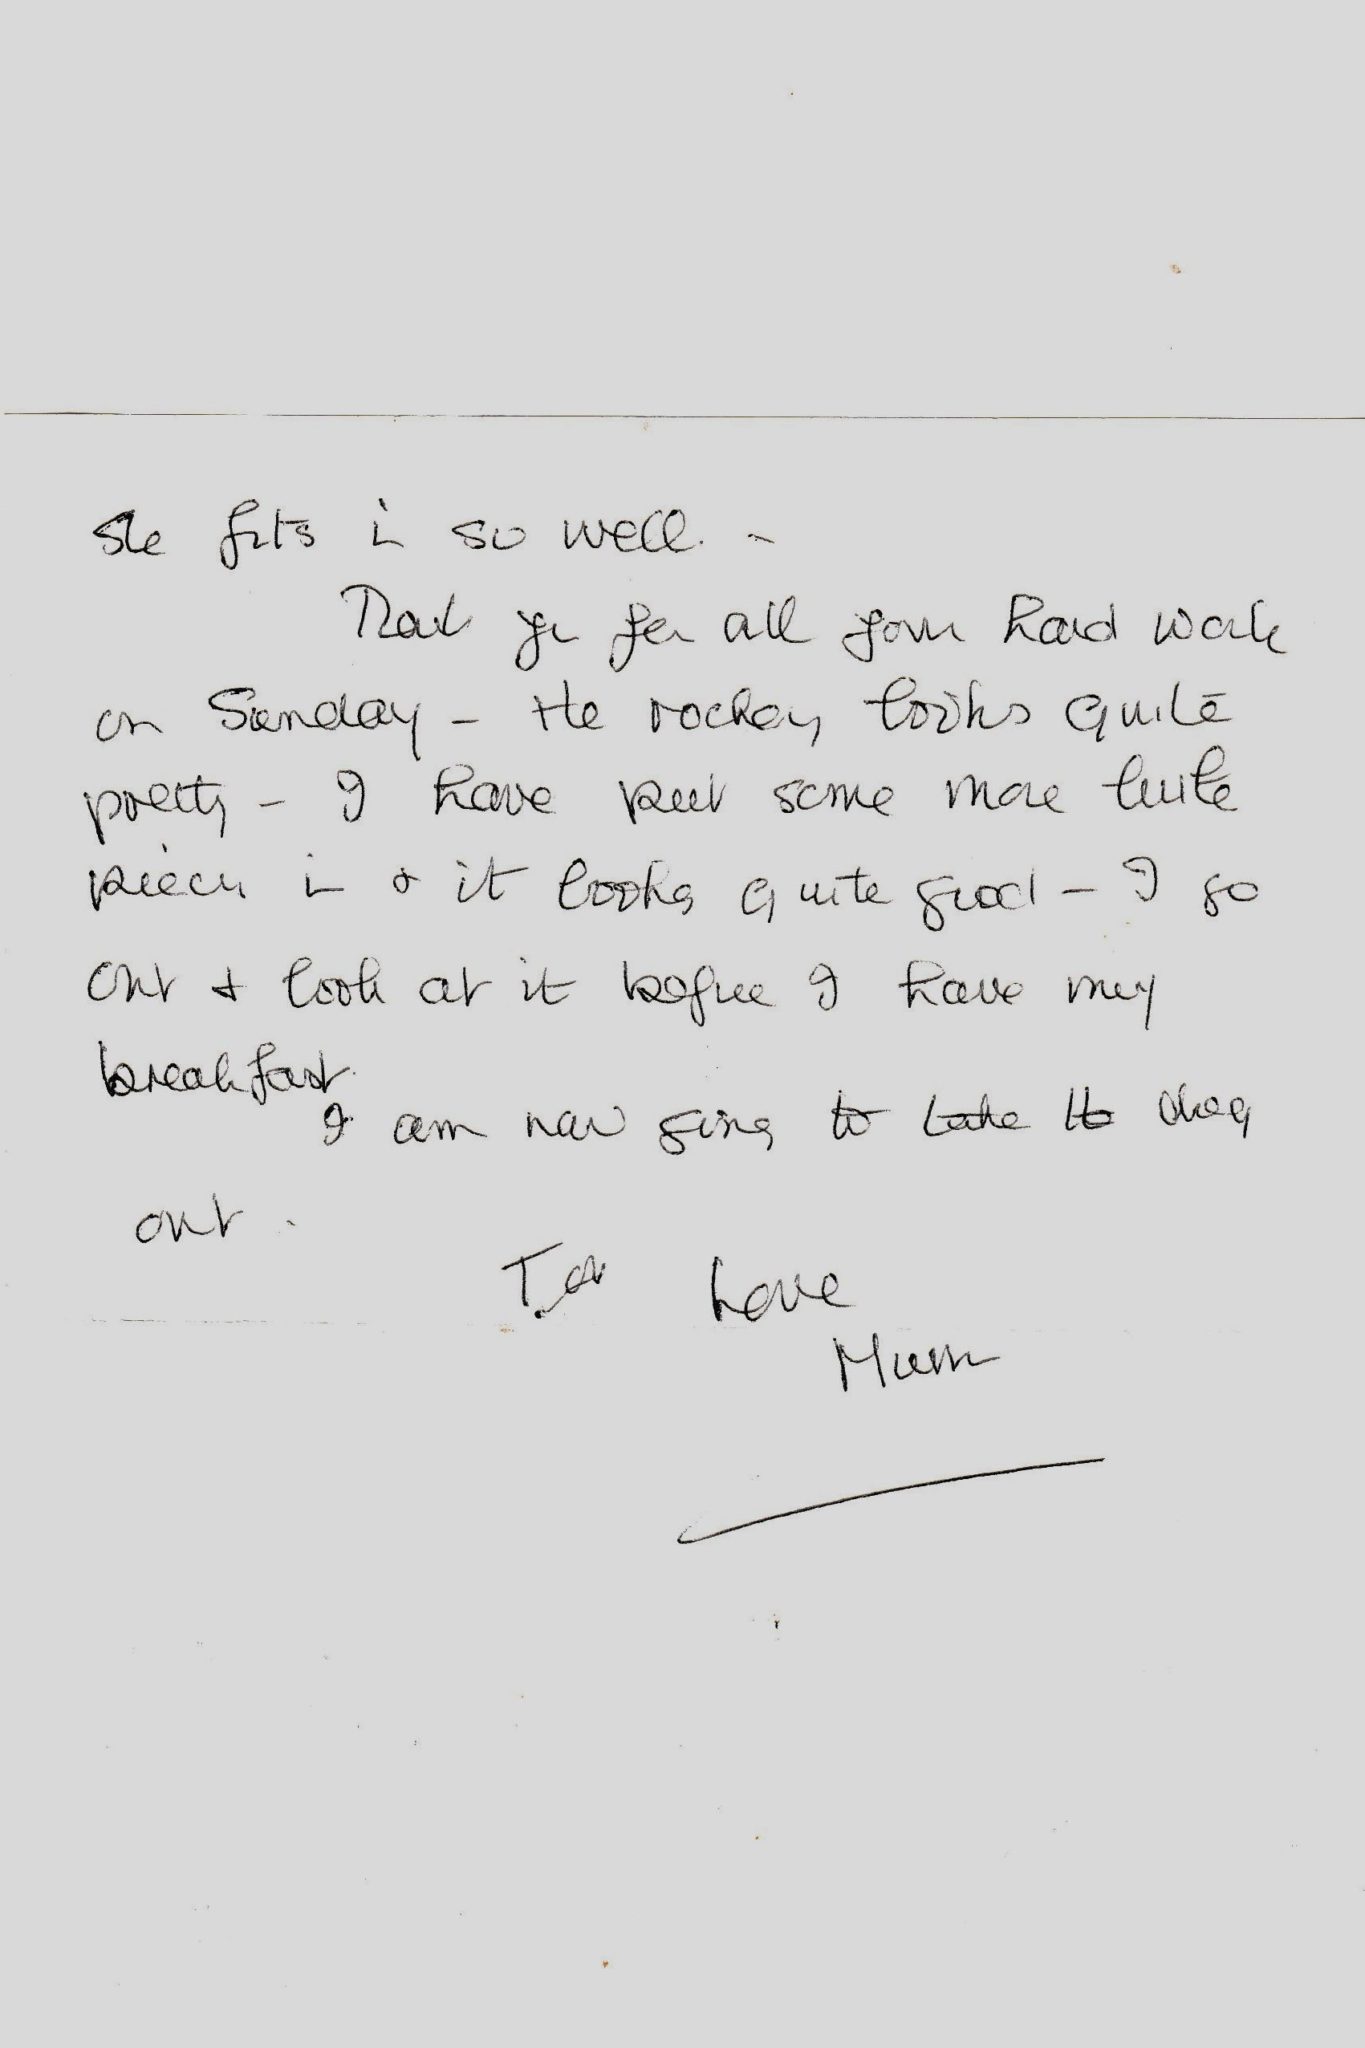 She fits in so well. -
Thank you for all your hard work
on Sunday - the rockery looks quite
pretty - I have put some more little
pieces in & it looks quite good - I go
out & look at it before I have my
breakfast.
I am now going to take the dog
out.
Love
Mum